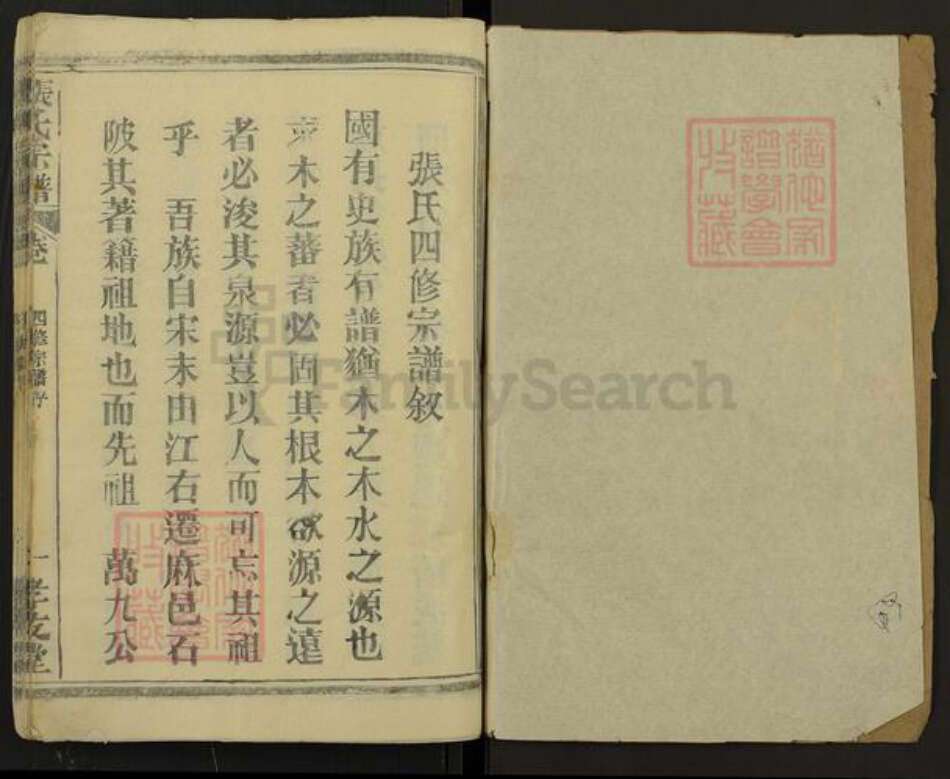 猶他家
譜學會
特藏
張氏四修宗譜敘
國有史族有譜猶木之本水之源也
求木之蕃者必固其根本欲源之遠
者必浚其泉源豈以人而可忘其祖
乎 吾族自宋末由江右遷麻邑石
陂其著籍祖地也而先祖 萬九公
猶他家
譜學會
特藏
張氏宗譜
卷一
四修宗譜序
一
孝友堂
FamilySearch